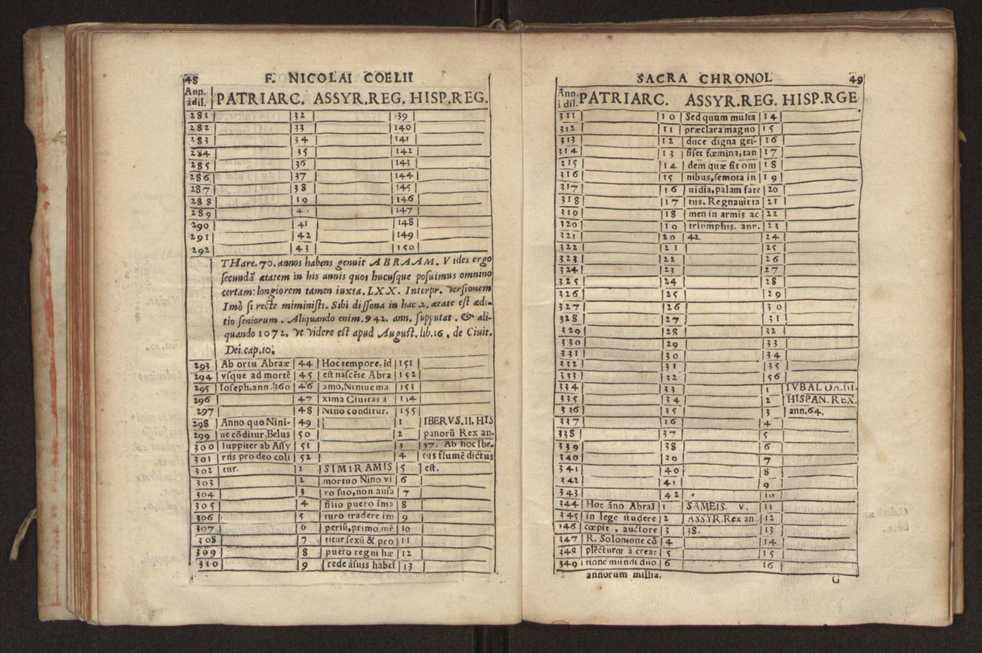 48 F. NICOLAI COELII
Ann. ádil. PATRIARC. ASSYR.REG. HISP.REG.
281 32 139
282 33 140
283 34 141
284 35 142
285 36 143
286 37 144
287 38 145
288 39 146
289 4 147
290 41 148
291 42 149
292 43 150
THare. 70. annos habens genuit ABRAAM. Vides ergo
secundā ætatem in his annis quos hucusque posuimus omnino
certam: longiorem tamen iuxta. LXX. Interpr. versionem
Imò si recte miministi. Sibi dissona in hac 2. ætate est ædi-
tio seniorum. Aliquando enim. 942. ann. supputat. & ali-
quando 1072. vt videre est apud August. lib.16. de Ciuit.
Dei. cap.10.
293 Ab ortu Abraæ 44 Hoc tempore, id 151
294 vsque ad mortē 45 est nascēte Abra 152
295 Ioseph. ann. 360 46 amo, Niniue ma 153
296 47 xima Ciuitas a 154
297 48 Nino conditur. 155
298 Anno quo Nini- 49 1 IBERVS.II.HIS
299 ue cōditur, Belus 50 2 panorū Rex an.
300 Iuppiter ab Assy 51 3 37. Ab hoc Ibe-
301 riis pro deo coli 52 4 rus flumē dictus
302 tur. 1 SIMIRAMIS 5 est.
303 2 mortuo Nino vi 6
304 3 ro suo, non ausa 7
305 4 filio puero ima 8
306 5 turo tradere im 9
307 6 periū, primo mē 10
308 7 titur sexū & pro 11
309 8 puero regni hæ 12
310 9 rede ásuis habet 13
SACRA CHRONOL 49
Ann. i dil. PATRIARC. ASSYR.REG. HISP.RGE
311 10 Sed quum multa 14
312 11 præclara magno 15
313 12 duce digna ges- 16
314 13 siset fœmina, tan 17
315 14 dem quæ sit om 18
316 15 nibus, semota in 19
317 16 uidia, palam fate 20
318 17 tus. Regnauit ta 21
319 18 men in armis ac 22
320 19 triumphis. ann. 23
321 20 42. 24
322 21 25
323 22 26
324 23 27
325 24 28
326 25 29
327 26 30
328 27 31
329 28 32
330 29 33
331 30 34
332 31 35
333 32 36
334 33 1 TVBAL
335 34 2 HISPAN. REX.
336 35 3 ann.64.
337 36 4
338 37 5
339 38 6
340 39 7
341 40 8
342 41 9
343 42 10
344 Hoc āno Abraā 1 SAMEIS. V. 11
345 in lege studere 2 ASSYR.Rex an. 12
346 cœpit, auctore 3 38. 13
347 R. Solomone cō 4 14
348 plēturq́ á crear 5 15
349 tione mundi duo 6 16
annorum millia. G